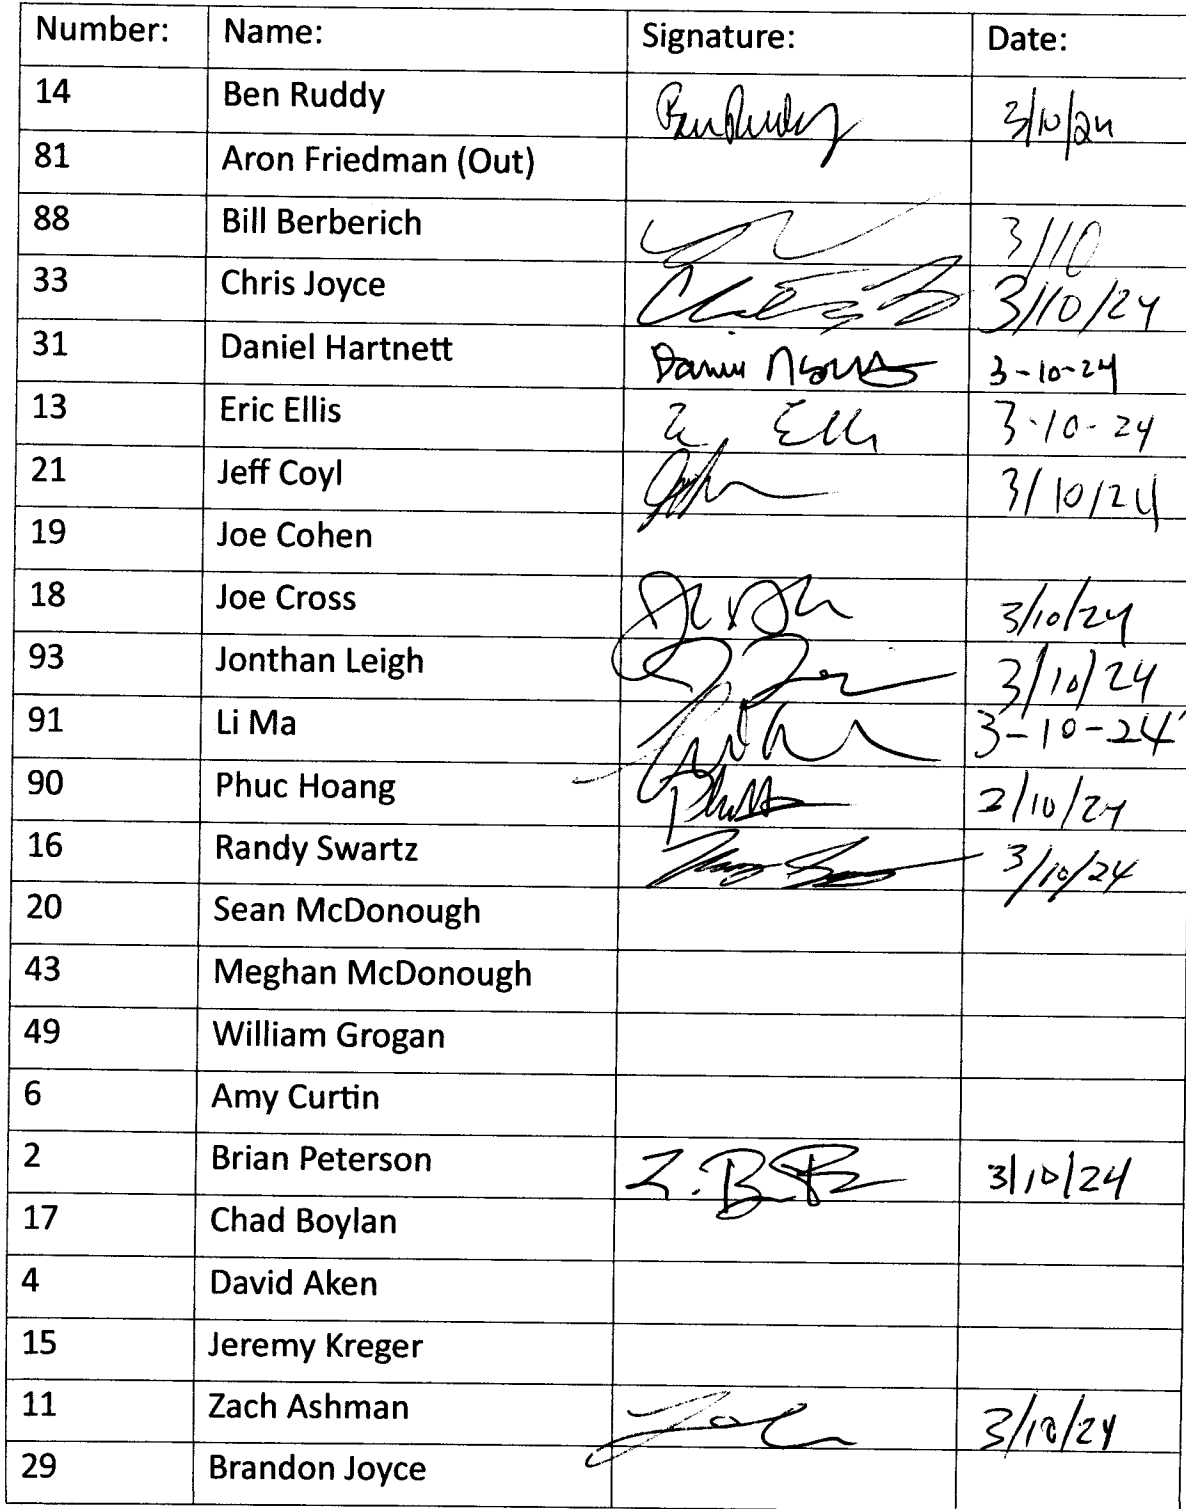 Number: Name: Signature: Date:
14 Ben Ruddy Ben Ruddy 3/10/24
81 Aron Friedman (Out)
88 Bill Berberich 3/10
33 Chris Joyce 3/10/24
31 Daniel Hartnett 3-10-24
13 Eric Ellis E Ellis 3-10-24
21 Jeff Coyl 3/10/24
19 Joe Cohen
18 Joe Cross 3/10/24
93 Jonthan Leigh 3/10/24
91 Li Ma 3-10-24
90 Phuc Hoang 2/10/24
16 Randy Swartz 3/10/24
20 Sean McDonough
43 Meghan McDonough
49 William Grogan
6 Amy Curtin
2 Brian Peterson 3/10/24
17 Chad Boylan
4 David Aken
15 Jeremy Kreger
11 Zach Ashman 3/10/24
29 Brandon Joyce